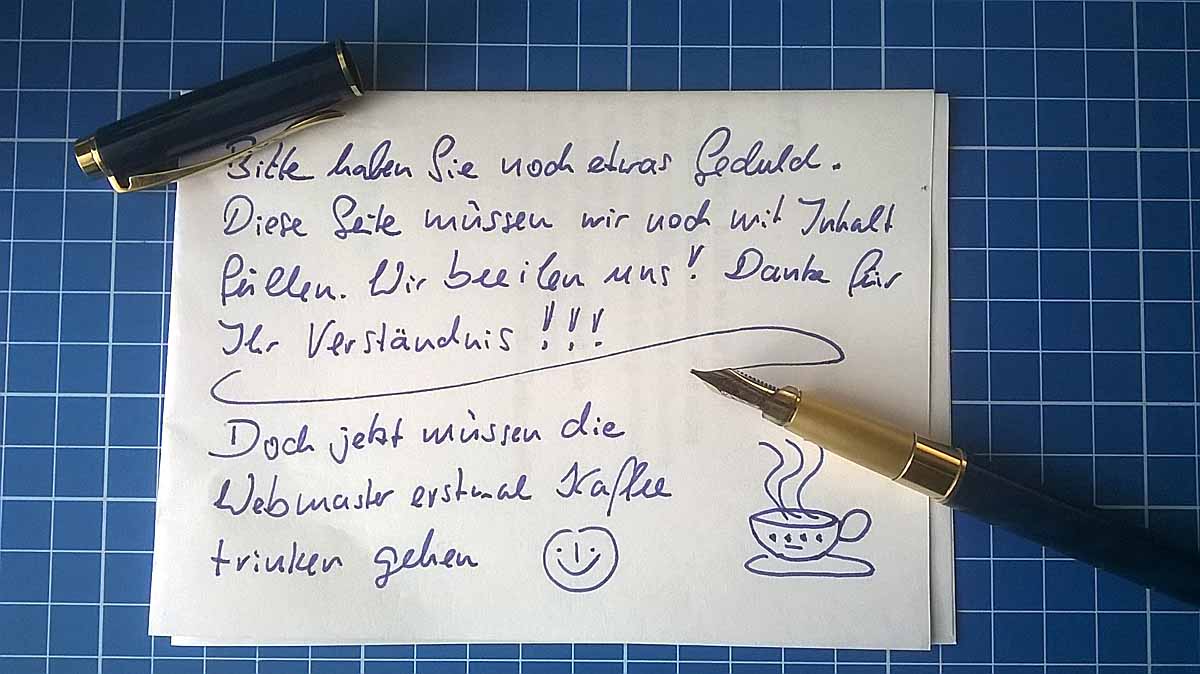 Bitte haben Sie noch etwas Geduld.
Diese Seite müssen wir noch mit Inhalt
füllen. Wir beeilen uns! Danke für
Ihr Verständnis !!!
Doch jetzt müssen die
Webmaster erstmal Kaffee
trinken gehen